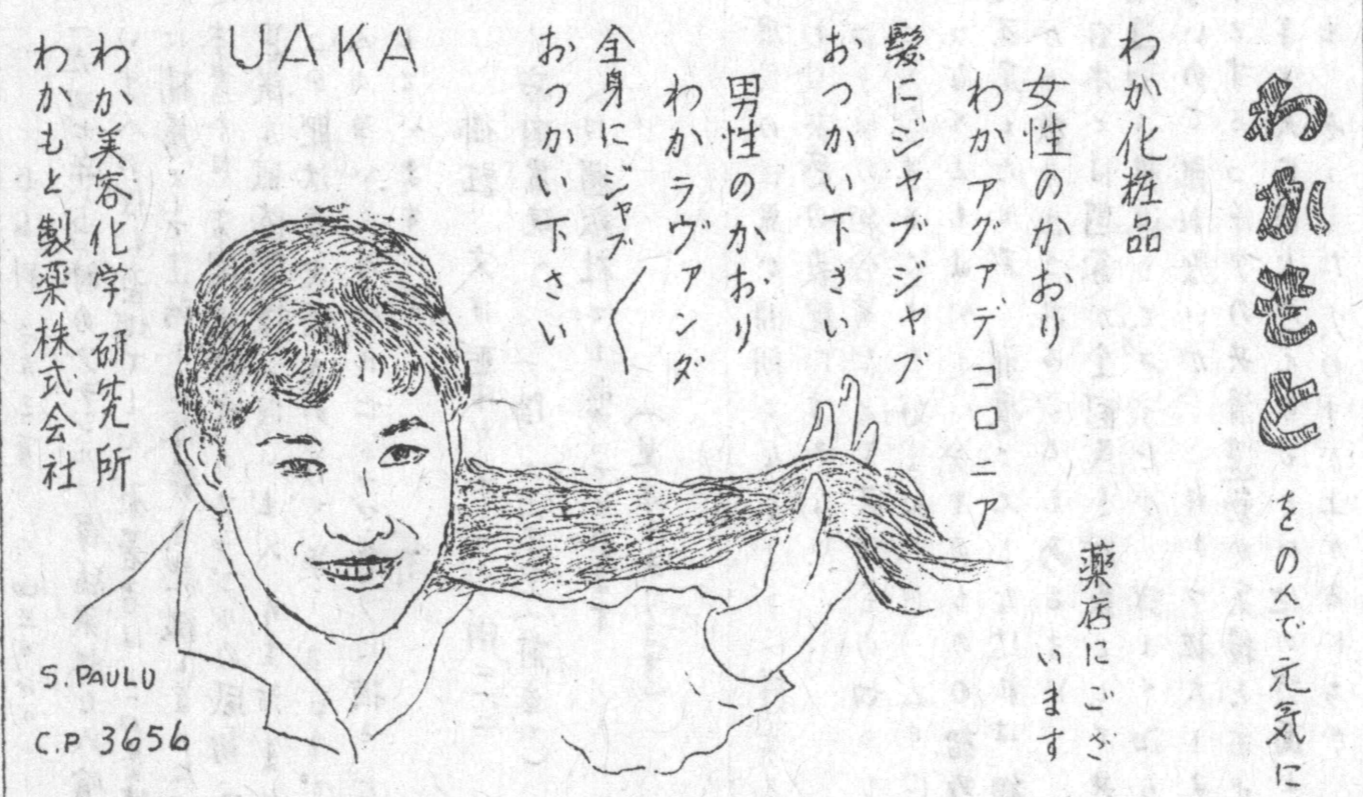 わかもと をのんで元気に
薬店にござ
います
わか化粧品
女性のかおり
わか アグァデ コロニア
髪にジャブジャブ
おつかい下さい
男性のかおり
わか ラヴァンダ
全身にジャブ〱
おつかい下さい
UAKA
わか美容化学研究所
わかもと製薬株式会社
S. PAULO
C.P 3656